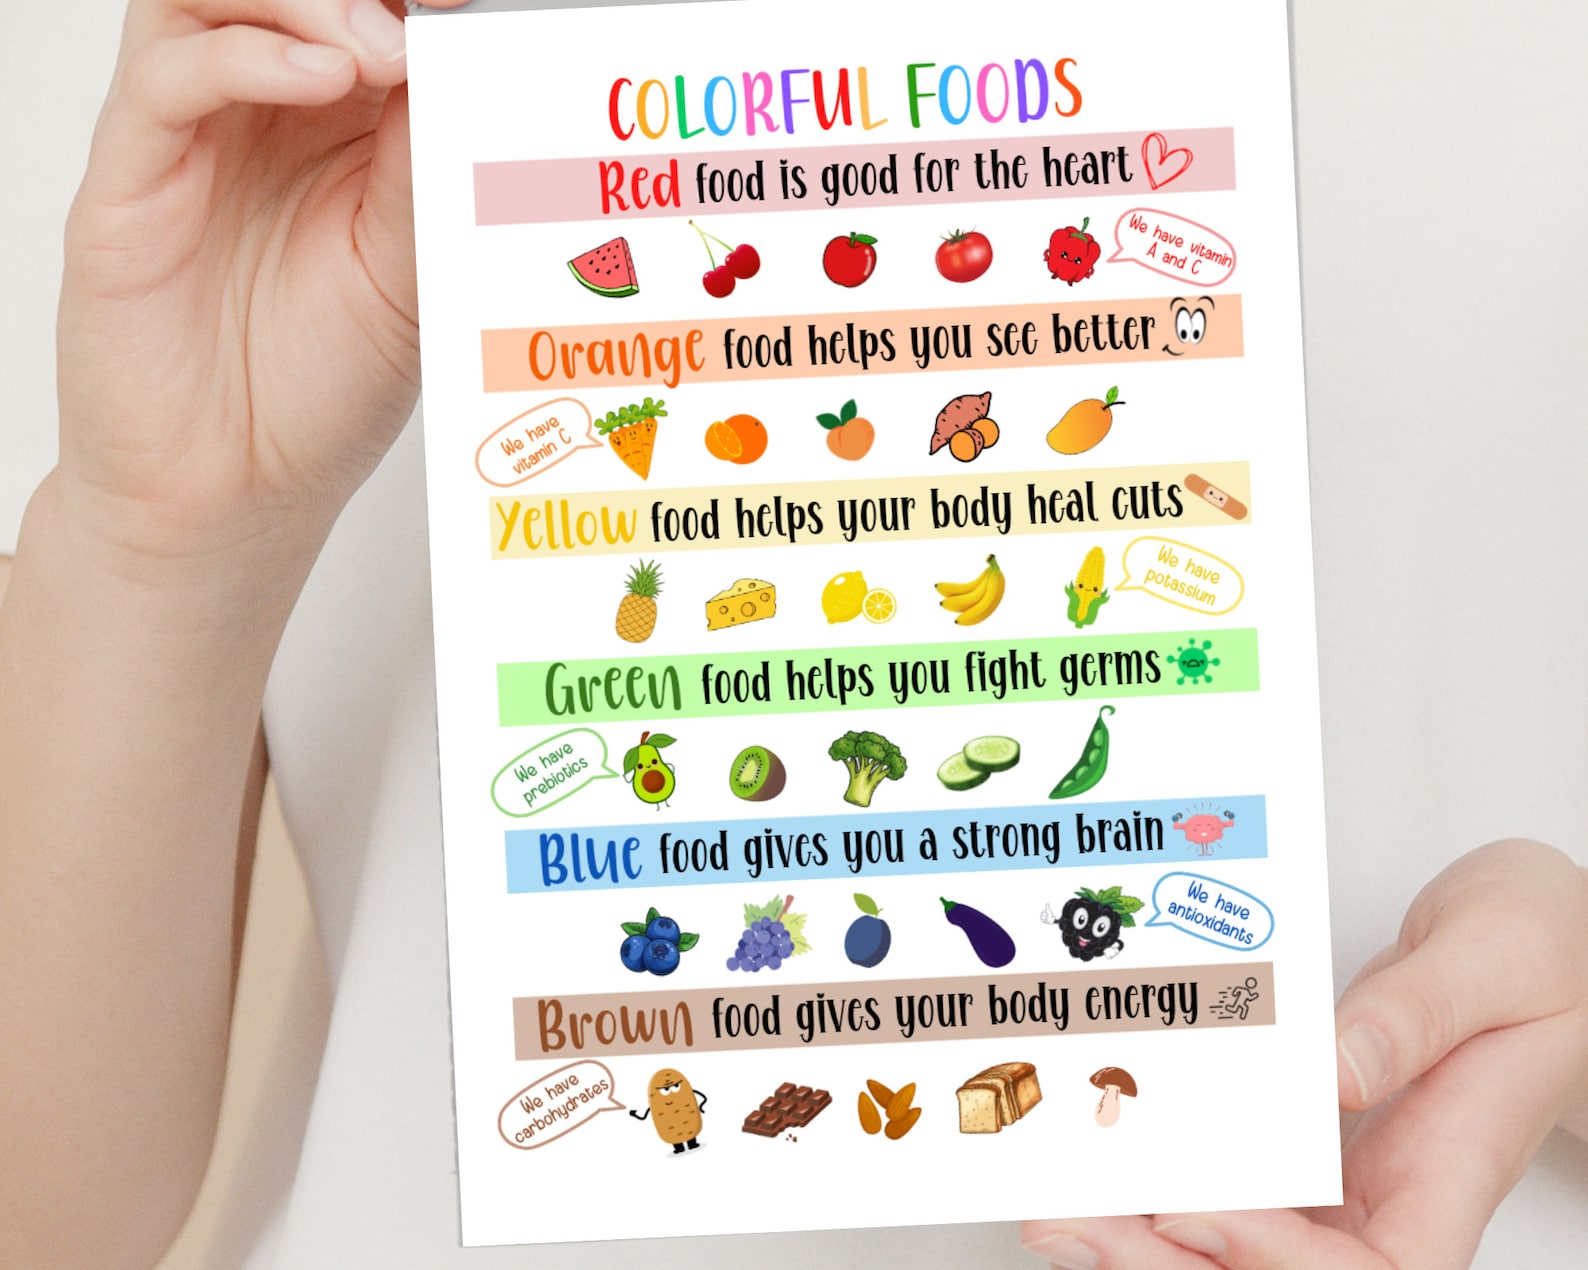 COLORFUL FOODS
Red food is good for the heart
We have vitamin
A and C
Orange food helps you see better
We have
vitamin C
Yellow food helps your body heal cuts
We have
potassium
Green food helps you fight germs
We have
prebiotics
Blue food gives you a strong brain
We have
antioxidants
Brown food gives your body energy
We have
carbohydrates